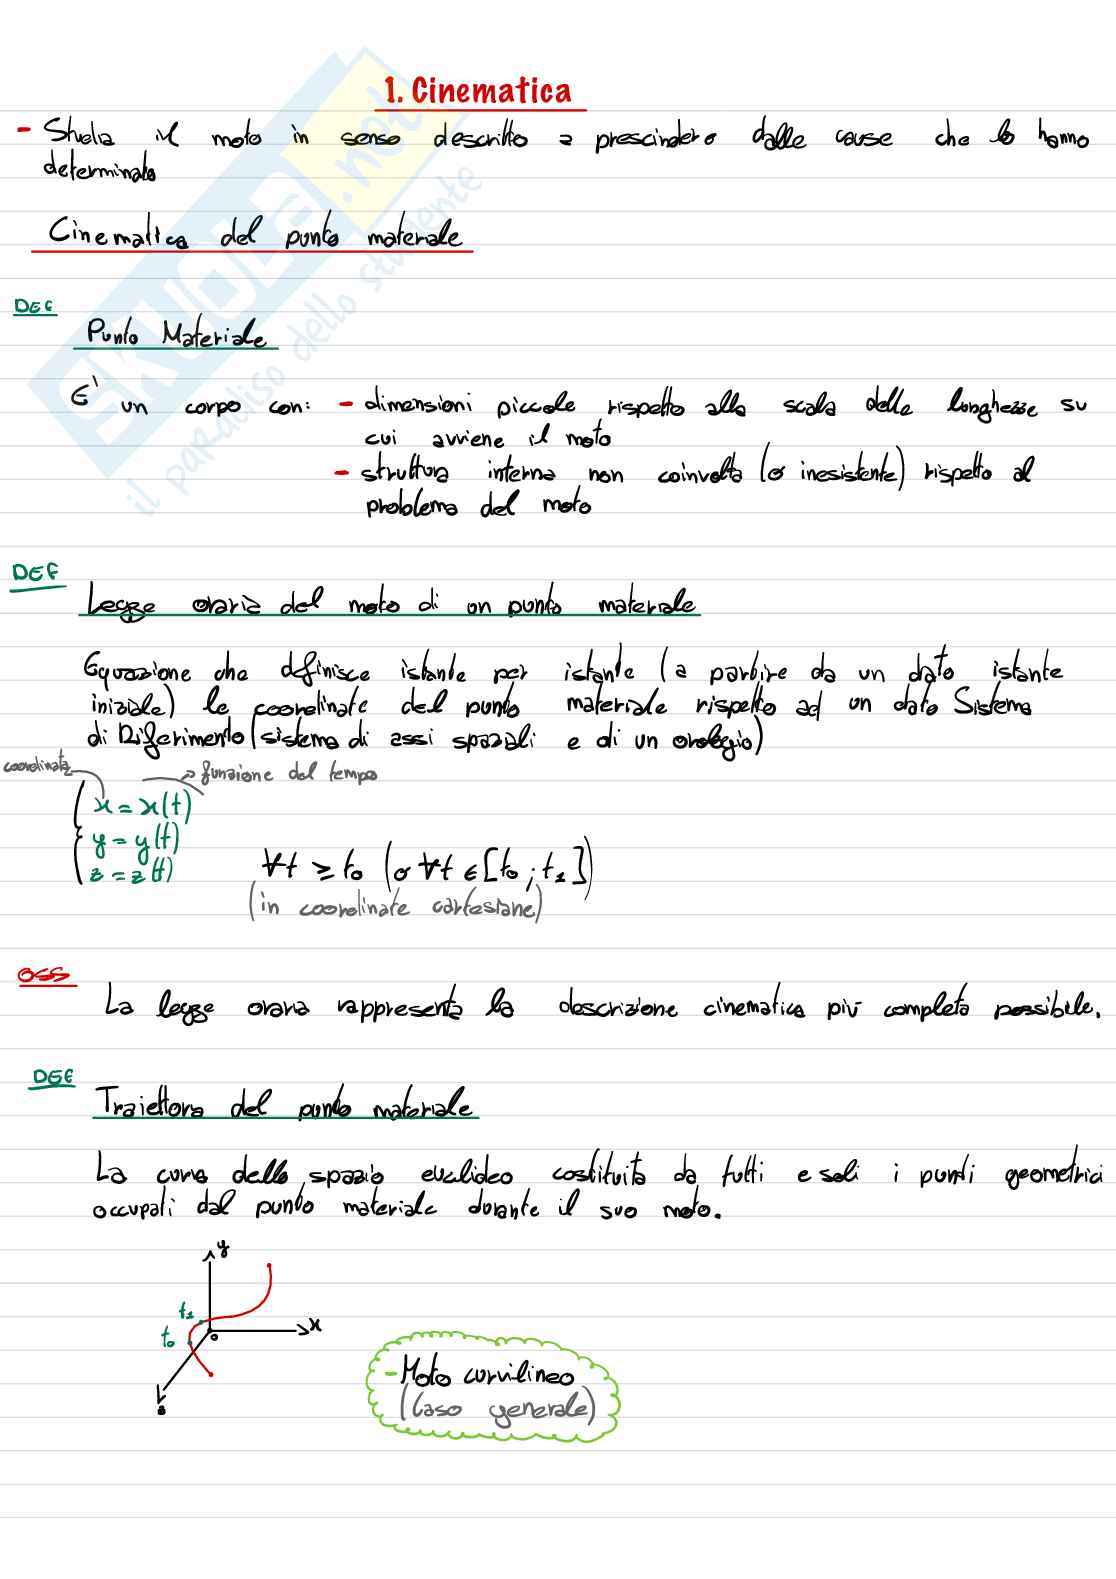 1. Cinematica
- Studia il moto in senso descritto a prescindere dalle cause che lo hanno
determinato
Cinematica del punto materiale
DEF
Punto Materiale
E' un corpo con: - dimensioni piccole rispetto alla scala delle lunghezze su
cui avviene il moto
- struttura interna non coinvolta (o inesistente) rispetto al
problema del moto
DEF
Legge oraria del moto di un punto materiale
Equazione che definisce istante per istante (a partire da un dato istante
iniziale) le coordinate del punto materiale rispetto ad un dato Sistema
di Riferimento (sistema di assi spaziali e di un orologio)
coordinata → funzione del tempo
x = x(t)
y = y(t)
z = z(t)
∀t ⩾ t₀ (o ∀t ∈ [t₀ ; t₁])
(in coordinate cartesiane)
OSS
La legge oraria rappresenta la descrizione cinematica più completa possibile.
DEF
Traiettora del punto materiale
La curva dello spazio euclideo costituita da tutti e soli i punti geometrici
occupati dal punto materiale durante il suo moto.
y
t₁
x
t₀
o
z
- Moto curvilineo
(Caso generale)
SKUOLA.net
il paradiso dello studente